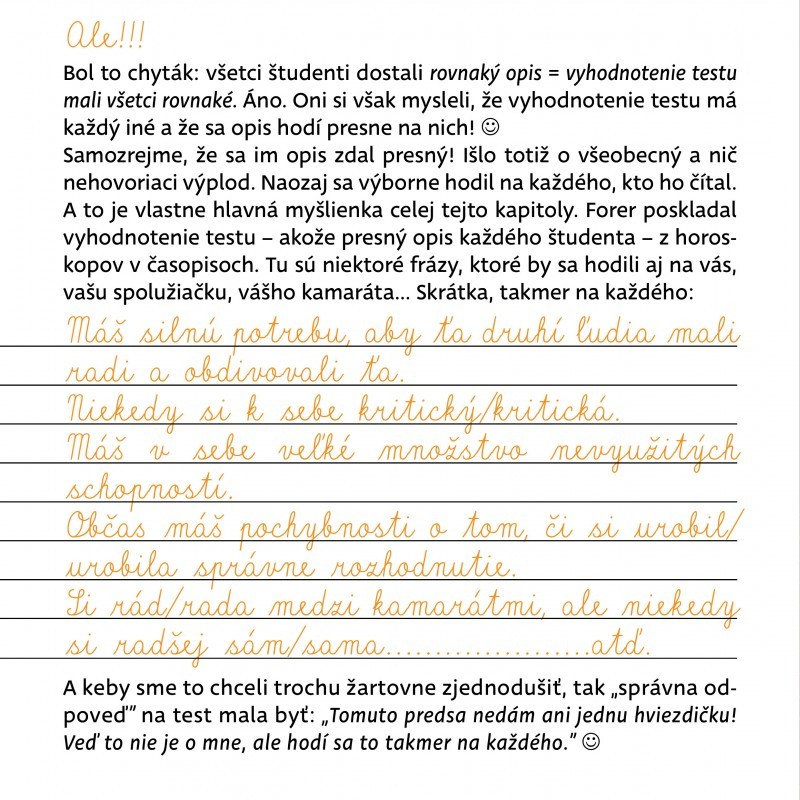 Ale!!!
Bol to chyták: všetci študenti dostali rovnaký opis = vyhodnotenie testu
mali všetci rovnaké. Áno. Oni si však mysleli, že vyhodnotenie testu má
každý iné a že sa opis hodí presne na nich! ☺
Samozrejme, že sa im opis zdal presný! Išlo totiž o všeobecný a nič
nehovoriaci výplod. Naozaj sa výborne hodil na každého, kto ho čítal.
A to je vlastne hlavná myšlienka celej tejto kapitoly. Forer poskladal
vyhodnotenie testu – akože presný opis každého študenta – z horos-
kopov v časopisoch. Tu sú niektoré frázy, ktoré by sa hodili aj na vás,
vašu spolužiačku, vášho kamaráta... Skrátka, takmer na každého:
Máš silnú potrebu, aby ťa druhí ľudia mali
radi a obdivovali ťa.
Niekedy si k sebe kritický/kritická.
Máš v sebe veľké množstvo nevyužitých
schopností.
Občas máš pochybnosti o tom, či si urobil/
urobila správne rozhodnutie.
Si rád/rada medzi kamarátmi, ale niekedy
si radšej sám/sama.....................atď.
A keby sme to chceli trochu žartovne zjednodušiť, tak „správna od-
poveď” na test mala byť: „Tomuto predsa nedám ani jednu hviezdičku!
Veď to nie je o mne, ale hodí sa to takmer na každého.” ☺